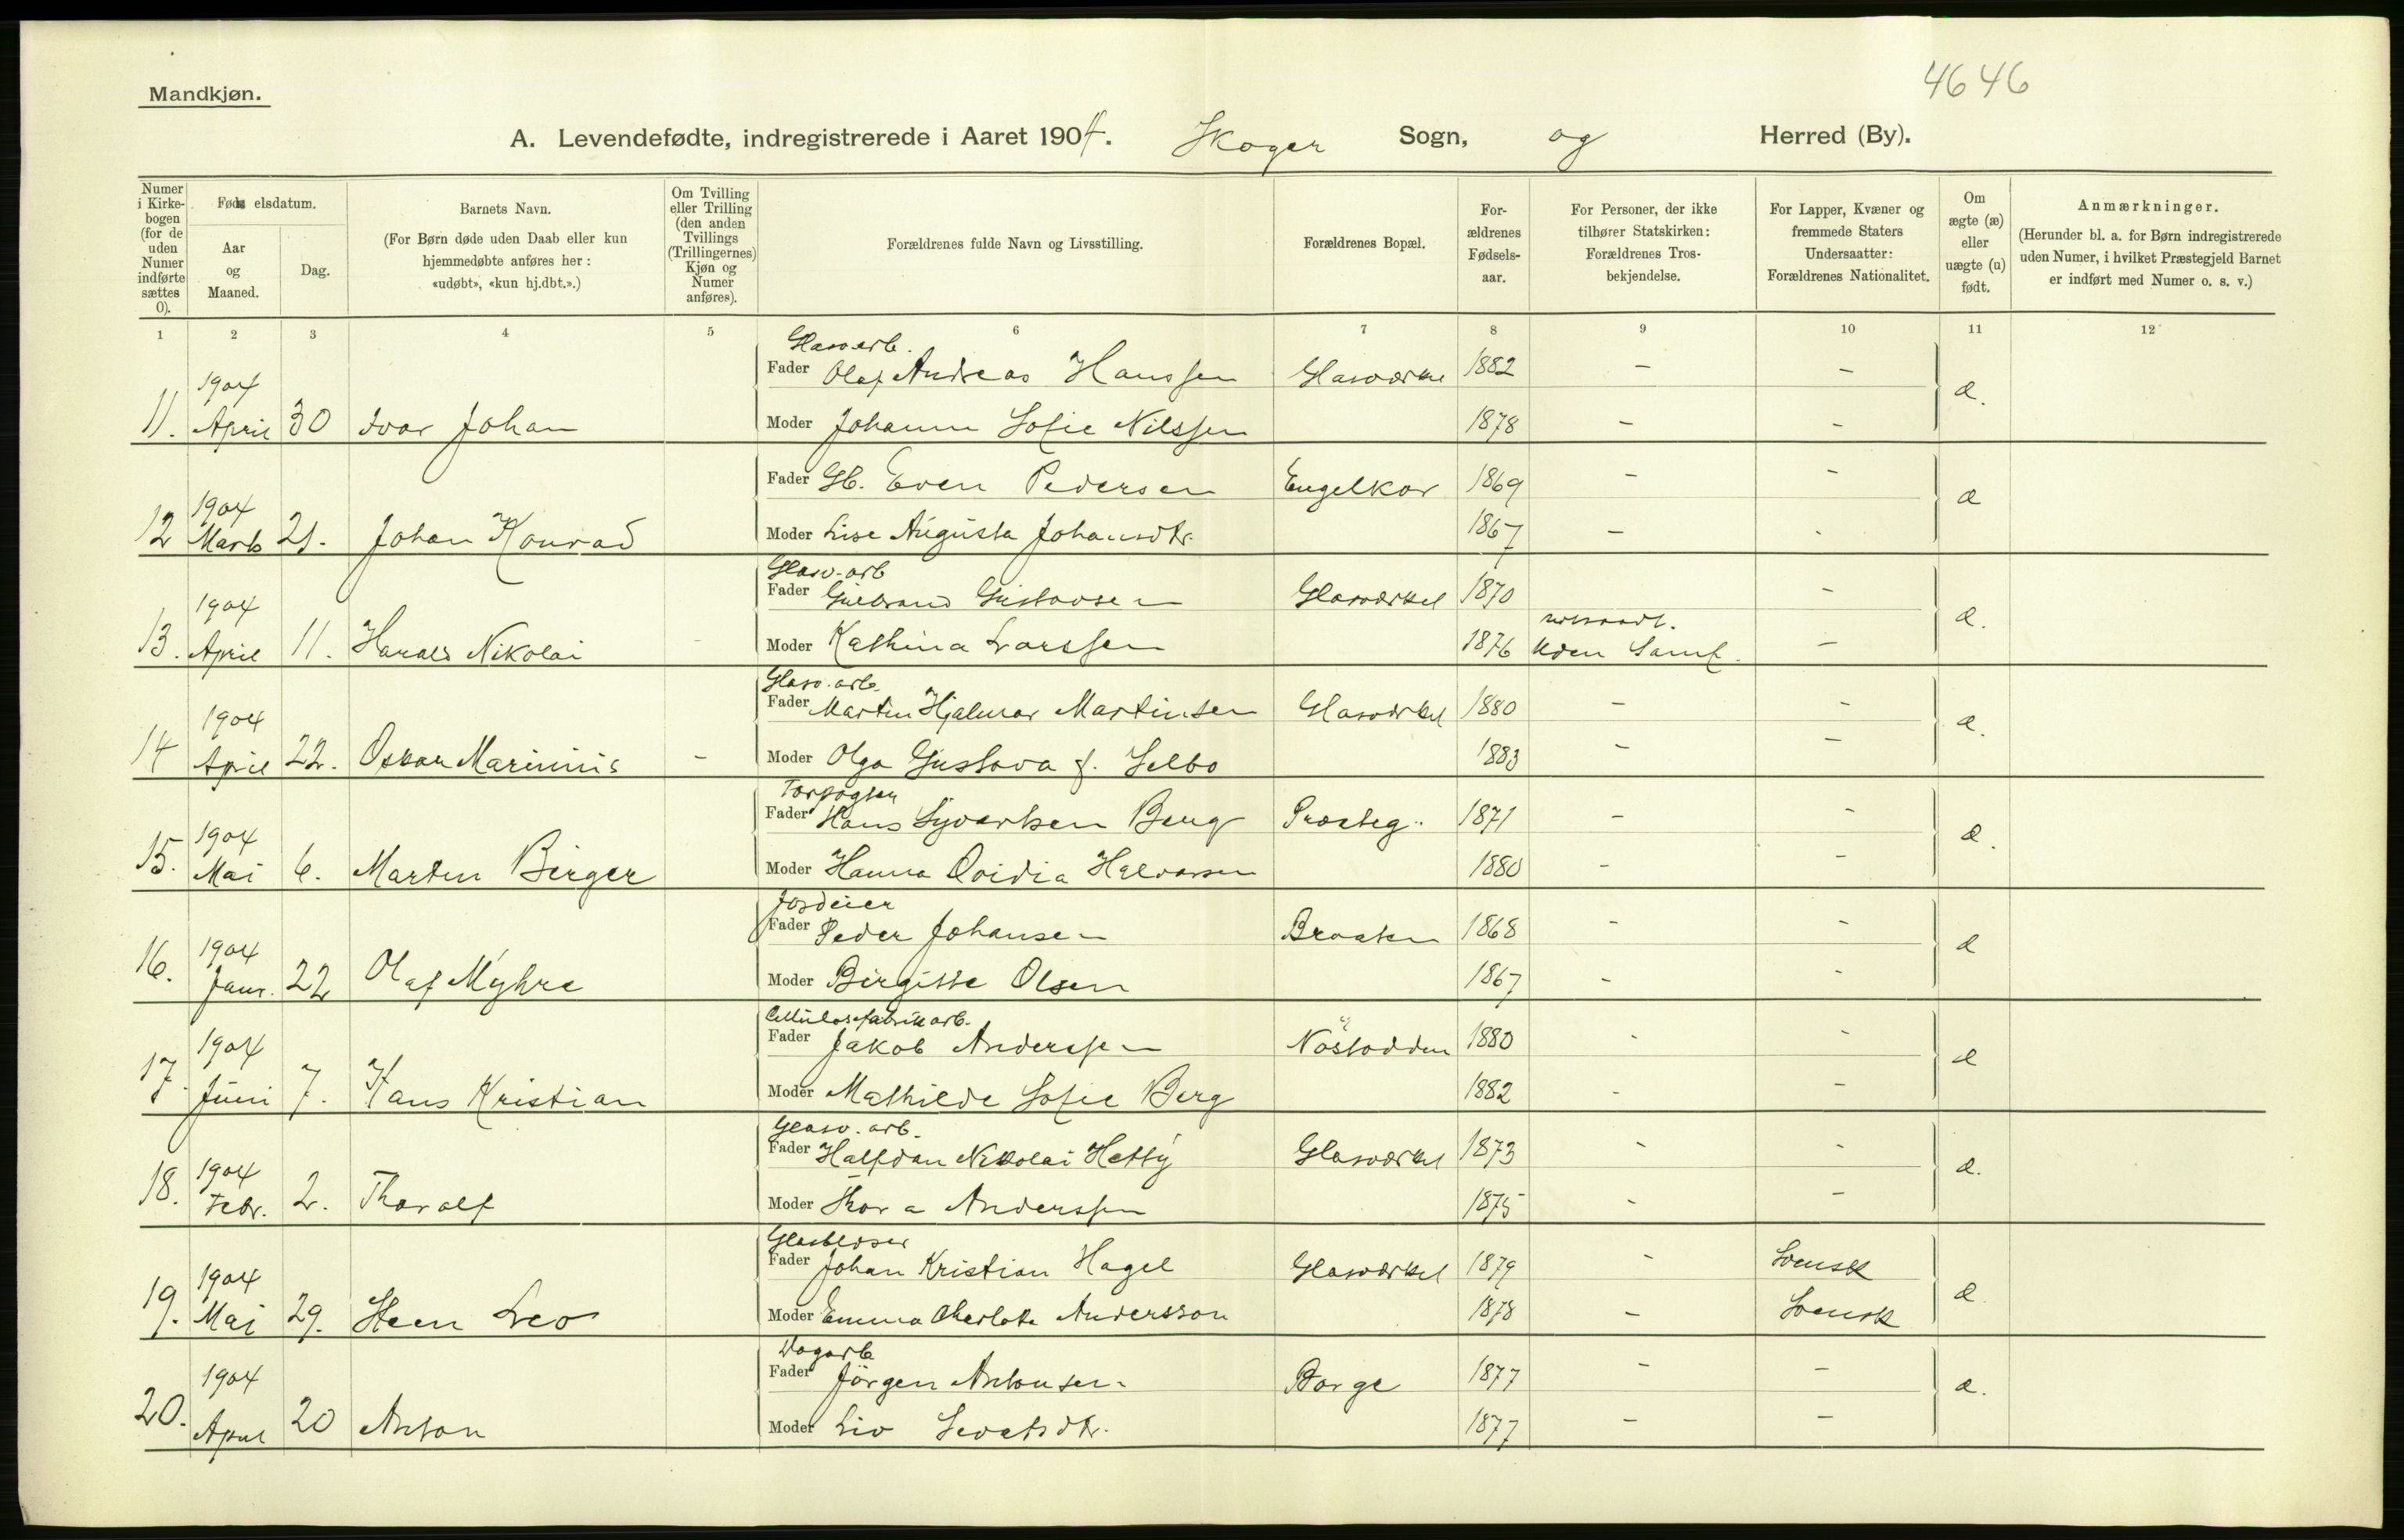 4646
Mandkjøn.
A. Levendefødte, indregistrerede i Aaret 1904. Skoger Sogn, og Herred (By).
Numer i Kirkebogen (for de uden Numer indførte sættes 0).
Fødselsdatum.
Aar og Maaned.
Dag.
Barnets Navn.
(For Børn døde uden Daab eller kun hjemmedøbte anføres her: «udøbt», «kun hj.dbt.».)
Om Tvilling eller Trilling (den anden Tvillings (Trillingernes) Kjøn og Numer anføres).
Forældrenes fulde Navn og Livsstilling.
Forældrenes Bopæl.
Forældrenes Fødselsaar.
For Personer, der ikke tilhører Statskirken: Forældrenes Trosbekjendelse.
For Lapper, Kvæner og fremmede Staters Undersaatter: Forældrenes Nationalitet.
Om ægte (æ) eller uægte (u) født.
Anmærkninger.
(Herunder bl. a. for Børn indregistrerede uden Numer, i hvilket Præstegjeld Barnet er indført med Numer o. s. v.)
1 2 3 4 5 6 7 8 9 10 11 12
Glasv.arb.
1904 Fader Olaf Andreas Hanssen Glasværket 1882 - - æ.
11. April 30 Ivar Johan Moder Johanne Sofie Nilssen 1878 - -
1904 Fader Gb. Even Pedersen Engelkor 1869 - - æ
12 Marts 21. Johan Konrad Moder Lise Augusta Johansdtr. 1867 - -
Glasv. arb
1904 Fader Gulbrand Gustavsen Glasværket 1870 - æ.
13. April 11. Harald Nikolai - Moder Kathina Larssen 1876 Uden Samf. -
Glasv. arb.
1904 Fader Martin Hjalmar Martinsen Glasværket 1880 - - æ.
14 April 22. Oskar Marinius - Moder Olga Gustava f. Selbo 1883 - -
1904 Fader Hans Syvertsen Berg Præsteg. 1871 - - æ.
15. Mai 6. Martin Birger Moder Hanna Ovidia Halvorsen 1880 - -
Jordeier
1904 Fader Peder Johansen Braaten 1868 - - æ
16. Janr. 22 Olaf Myhre Moder Birgitte Olsen 1867 - -
Cellulosefabrikarb.
1904 Fader Jakob Anderssen Nöstodden 1880 - - æ
17. Juni 7. Hans Kristian Moder Mathilde Sofie Berg 1882 - -
Glasv. arb.
1904 Fader Halfdan Nikolai Hetty Glasværket 1873 - - æ.
18. Febr. 2. Thoralf Moder Thora Anderssen 1875 - -
Glasblæser
1904 Fader Johan Kristian Hagel Glasværket 1879 - Svensk æ
19. Mai 29. Steen Leo Moder Emma Charlotte Andersson 1878 - Svensk
Dagarb.
1904 Fader Jörgen Antonsen Borge 1877 - - æ.
20. April 20 Anton Moder Liv Sevatsdtr. 1877 - -